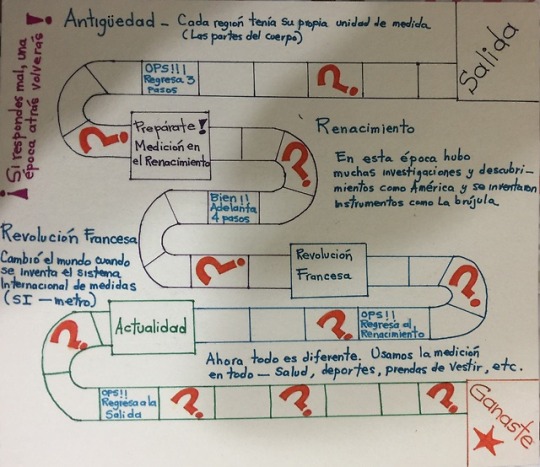 ¡Si respondes mal, una
época atrás volverás!
Antigüedad - Cada región tenía su propia unidad de medida
(Las partes del cuerpo)
Salida
OPS!!!
Regresa 3
pasos
?
?
Prepárate!
Medición en
el Renacimiento
?
Renacimiento
En esta época hubo
muchas investigaciones y descubri-
mientos como América y se inventaron
instrumentos como la brújula.
Bien!!
Adelanta
4 pasos
Revolución Francesa
Cambió el mundo cuando
se inventa el sistema
Internacional de medidas
(SI - metro)
?
Revolución
Francesa
?
?
Actualidad
?
OPS!!
Regresa al
Renacimiento
Ahora todo es diferente. Usamos la medición
en todo - Salud, deportes, prendas de vestir, etc.
OPS!!
Regresa a la
Salida
?
?
?
Ganaste